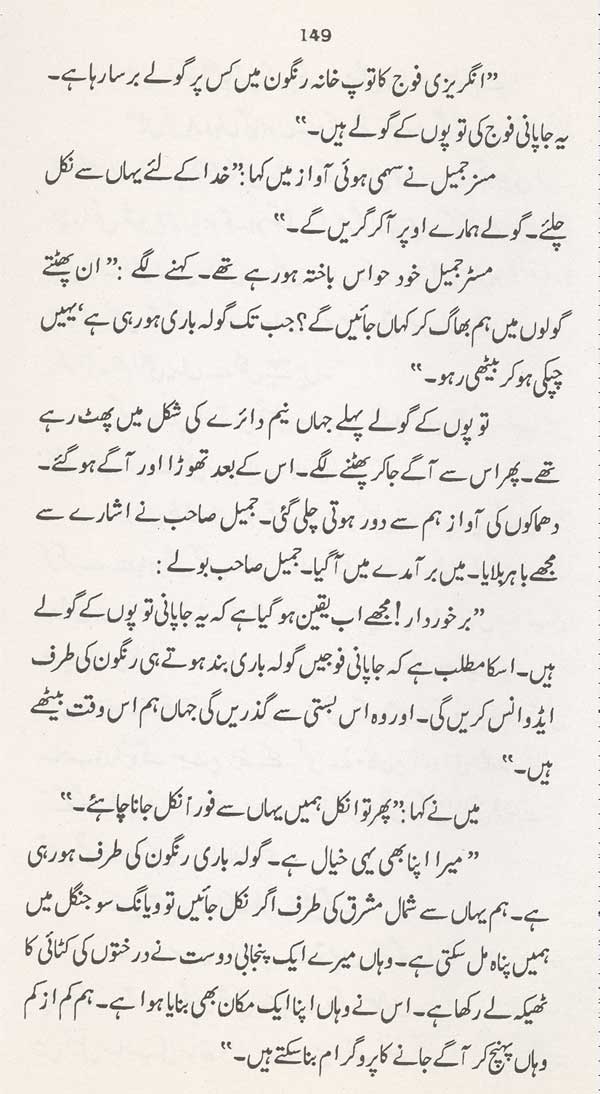 149
”انگریزی فوج کا توپ خانہ رنگون میں کس پر گولے برسا رہا ہے۔
یہ جاپانی فوج کی توپوں کے گولے ہیں۔“
مسز جمیل نے سہمی ہوئی آواز میں کہا: ”خدا کے لئے یہاں سے نکل
چلئے۔ گولے ہمارے اوپر آکر گریں گے۔“
مسٹر جمیل خود حواس باختہ ہو رہے تھے۔ کہنے لگے : ”ان پھٹتے
گولوں میں ہم بھاگ کر کہاں جائیں گے؟ جب تک گولہ باری ہو رہی ہے‘ یہیں
چپکی ہو کر بیٹھی رہو۔“
توپوں کے گولے پہلے جہاں نیم دائرے کی شکل میں پھٹ رہے
تھے۔ پھر اس سے آگے جا کر پھٹنے لگے۔ اس کے بعد تھوڑا اور آگے ہو گئے۔
دھماکوں کی آواز ہم سے دور ہوتی چلی گئی۔ جمیل صاحب نے اشارے سے
مجھے باہر بلایا۔ میں برآمدے میں آگیا۔ جمیل صاحب بولے :
”برخوردار! مجھے اب یقین ہو گیا ہے کہ یہ جاپانی توپوں کے گولے
ہیں۔ اسکا مطلب ہے کہ جاپانی فوجیں گولہ باری بند ہوتے ہی رنگون کی طرف
ایڈوانس کریں گی۔ اور وہ اس بستی سے گذریں گی جہاں ہم اس وقت بیٹھے
ہیں۔“
میں نے کہا : ”پھر تو انکل ہمیں یہاں سے فوراً نکل جانا چاہئے۔“
”میرا اپنا بھی یہی خیال ہے۔ گولہ باری رنگون کی طرف ہو رہی
ہے۔ ہم یہاں سے شمال مشرق کی طرف اگر نکل جائیں تو ویانگ سو جنگل میں
ہمیں پناہ مل سکتی ہے۔ وہاں میرے ایک پنجابی دوست نے درختوں کی کٹائی کا
ٹھیکہ لے رکھا ہے۔ اس نے وہاں اپنا ایک مکان بھی بنایا ہوا ہے۔ ہم کم از کم
وہاں پہنچ کر آگے جانے کا پروگرام بنا سکتے ہیں۔“